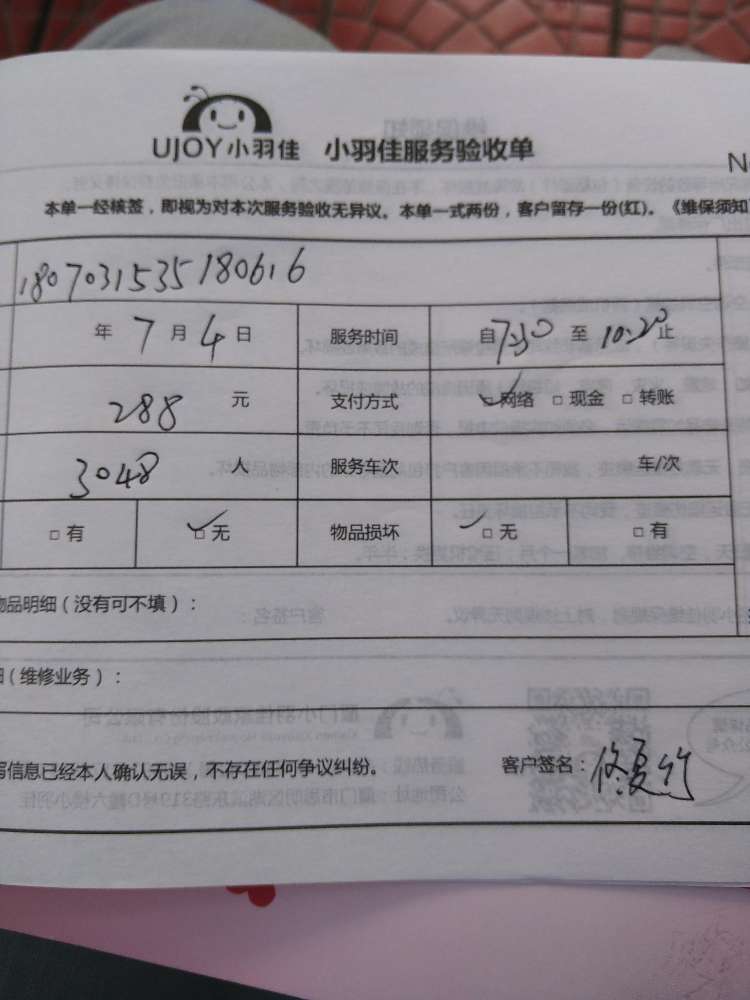 UJOY小羽佳 小羽佳服务验收单
N
本单一经核签，即视为对本次服务验收无异议。本单一式两份，客户留存一份(红)。《维保须知
1807031535180616
年 7 月 4 日 服务时间 自 7:30 至 10:20 止
288 元 支付方式 □网络 □现金 □转账
3048 人 服务车次 车/次
□有 □无 物品损坏 □无 □有
物品明细（没有可不填）：
（维修业务）：
写信息已经本人确认无误，不存在任何争议纠纷。 客户签名：修夏竹